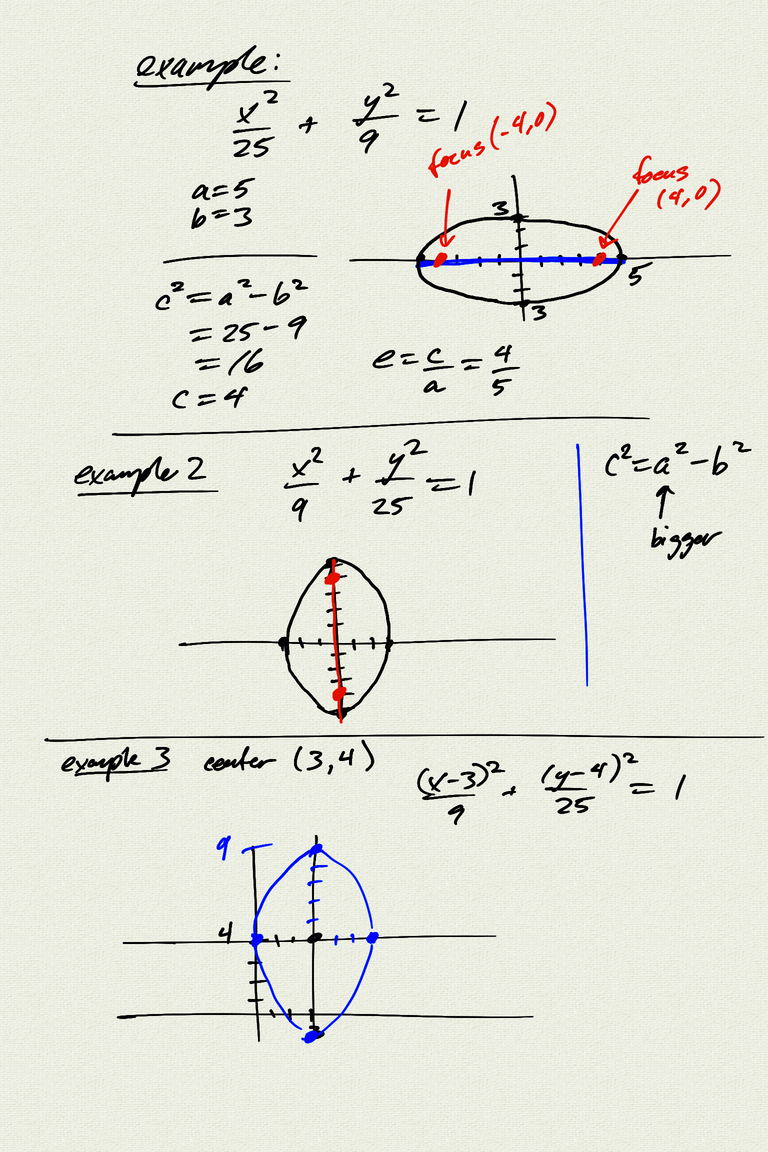 example:
x²/25 + y²/9 = 1
focus (-4,0)
focus (4,0)
a=5
b=3
3
5
3
c²=a²-b²
=25-9
=16
c=4
e=c/a=4/5
example 2
x²/9 + y²/25 =1
c²=a²-b²
↑
bigger
example 3 center (3,4)
(x-3)²/9 + (y-4)²/25 = 1
9
4
3